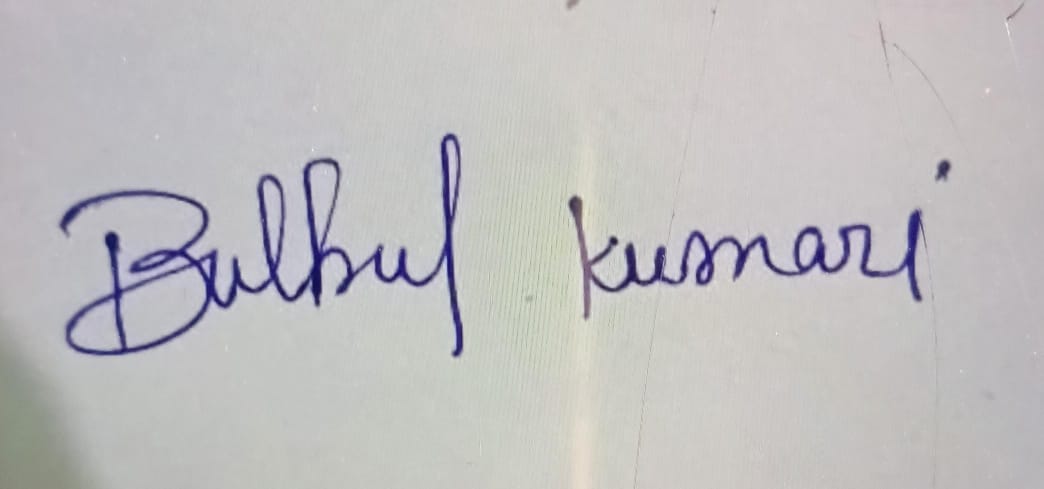 Bulbul kumari